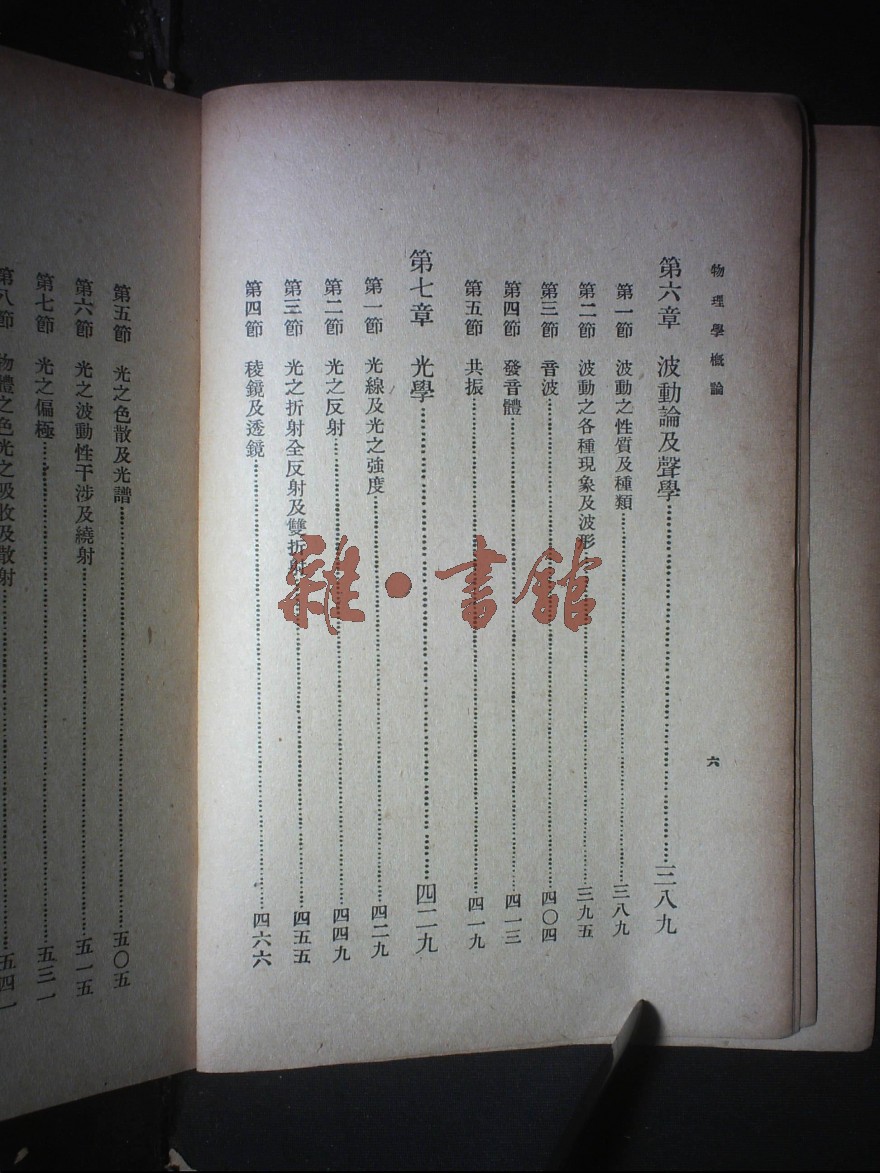 物理學概論
六
第六章　波動論及聲學……三八九
第一節　波動之性質及種類……三八九
第二節　波動之各種現象及波形……三九五
第三節　音波……四〇四
第四節　發音體……四一三
第五節　共振……四一九
第七章　光學……四二九
第一節　光線及光之強度……四二九
第二節　光之反射……四四九
第三節　光之折射全反射及雙折射……四五五
第四節　稜鏡及透鏡……四六六
第五節　光之色散及光譜……五〇五
第六節　光之波動性干涉及繞射……五一五
第七節　光之偏極……五三一
第八節　物體之色光之吸收及散射……五四一
雜·書館